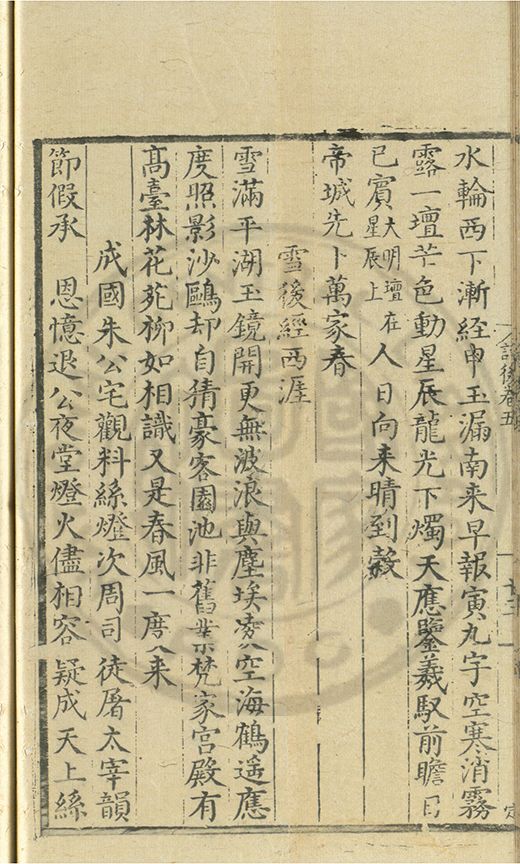 詩後卷五
水輪西下漸經申玉漏南来早報寅丸宇空寒消霧
露一壇芒色動星辰龍光下燭天應鑒羲馭前瞻日
已賓大明壇在星辰上人日向来晴到穀
帝城先卜萬家春
雪後經西涯
雪滿平湖玉鏡開更無波浪與塵埃凌空海鶴遥應
度照影沙鷗却自猜豪客園池非舊業梵家宮殿有
髙臺林花菀柳如相識又是春風一度来
成國朱公宅觀料絲燈次周司徒屠太宰韻
節假承恩憶退公夜堂燈火儘相容疑成天上絲